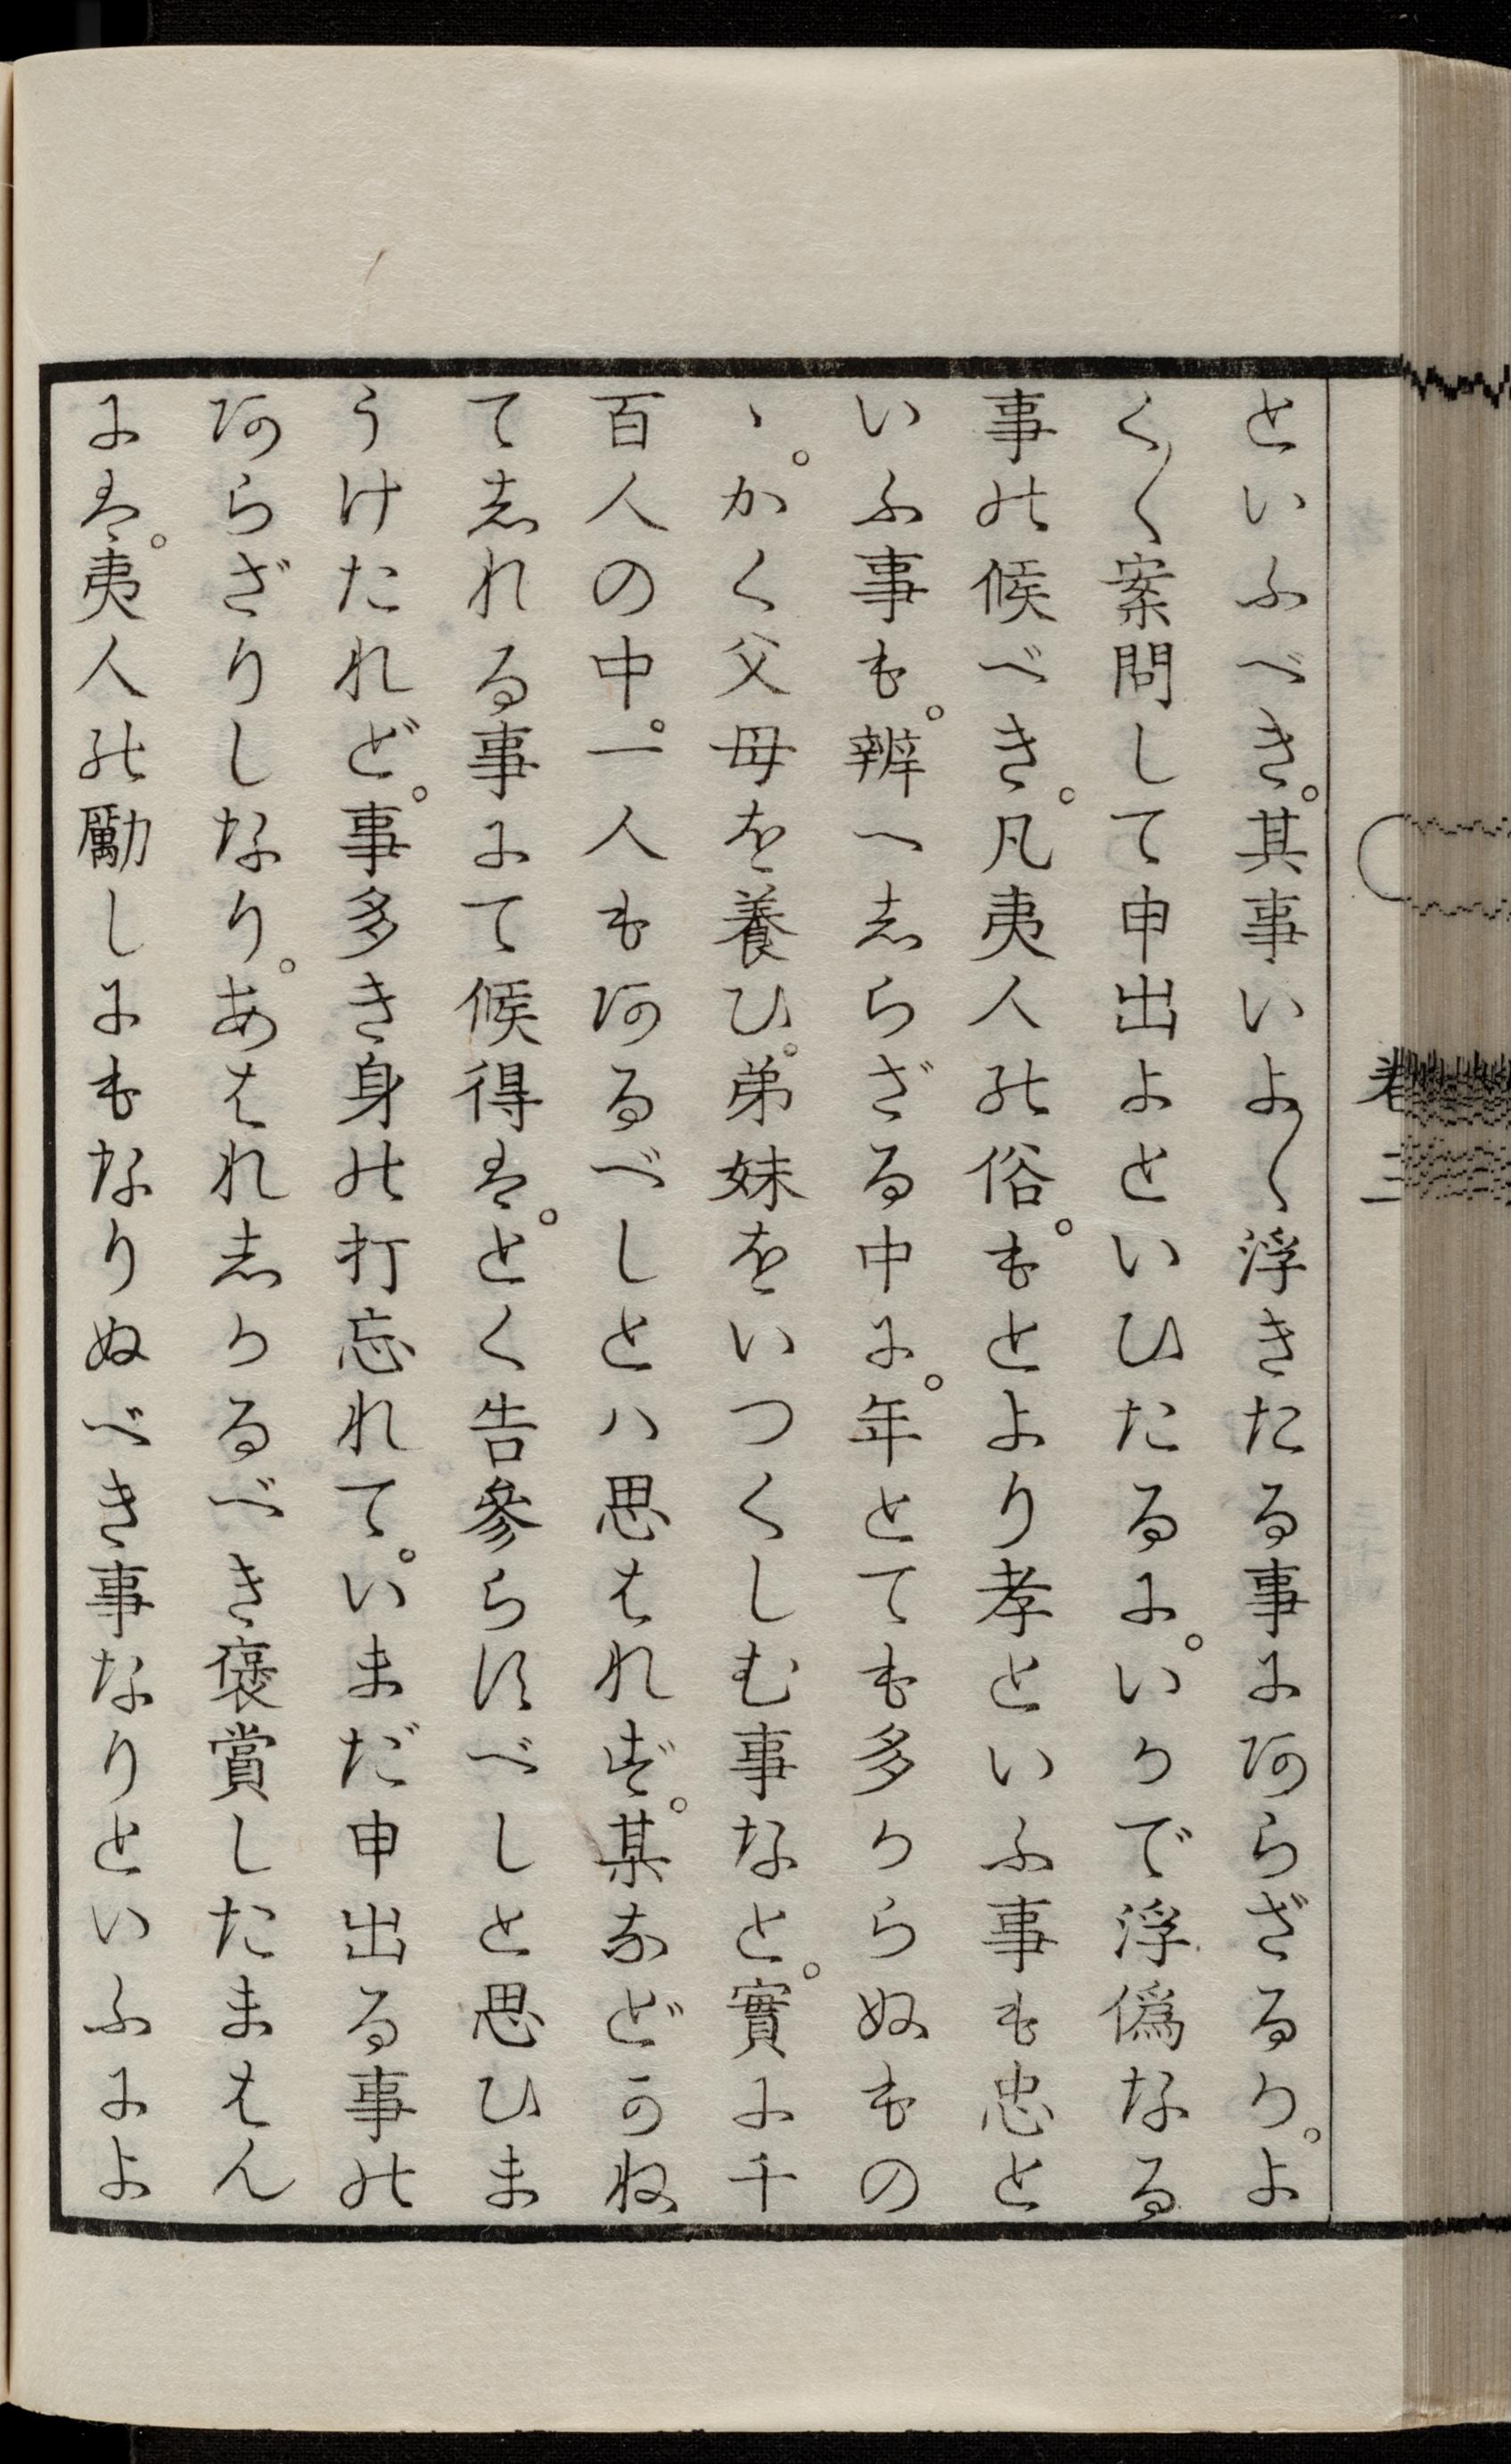 といふべき。其事いよ〱浮きたる事にあらざるか。よ
く〱案問して申出よといひたるに。いかで浮僞なる
事の候べき。凡夷人の俗。もとより孝といふ事も忠と
いふ事も。辨へしらざる中に。年とても多からぬもの
ゝ。かく父母を養ひ。弟妹をいつくしむ事なと。實に千
百人の中。一人もあるべしとハ思はれず。某などかね
てしれる事にて候得ば。とく告參らすべしと思ひま
うけたれど。事多き身の打忘れて。いまだ申出る事の
あらざりしなり。あはれしかるべき褒賞したまはん
には。夷人の勵しにもなりぬべき事なりといふによ
卷三